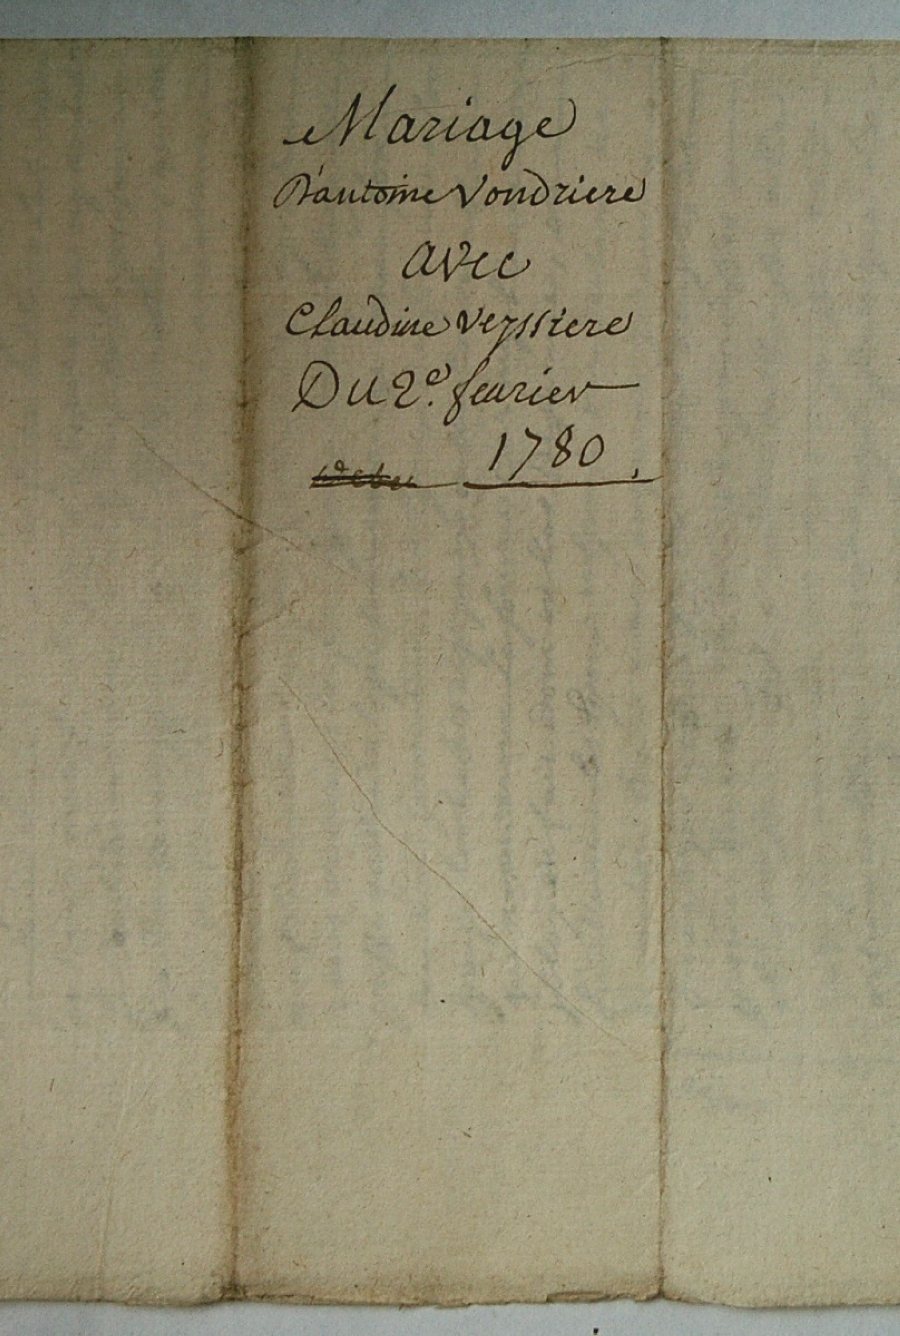 Mariage
D'antoine Vondriere
avec
Claudine Veyssiere
Du 2e. feurier
1780